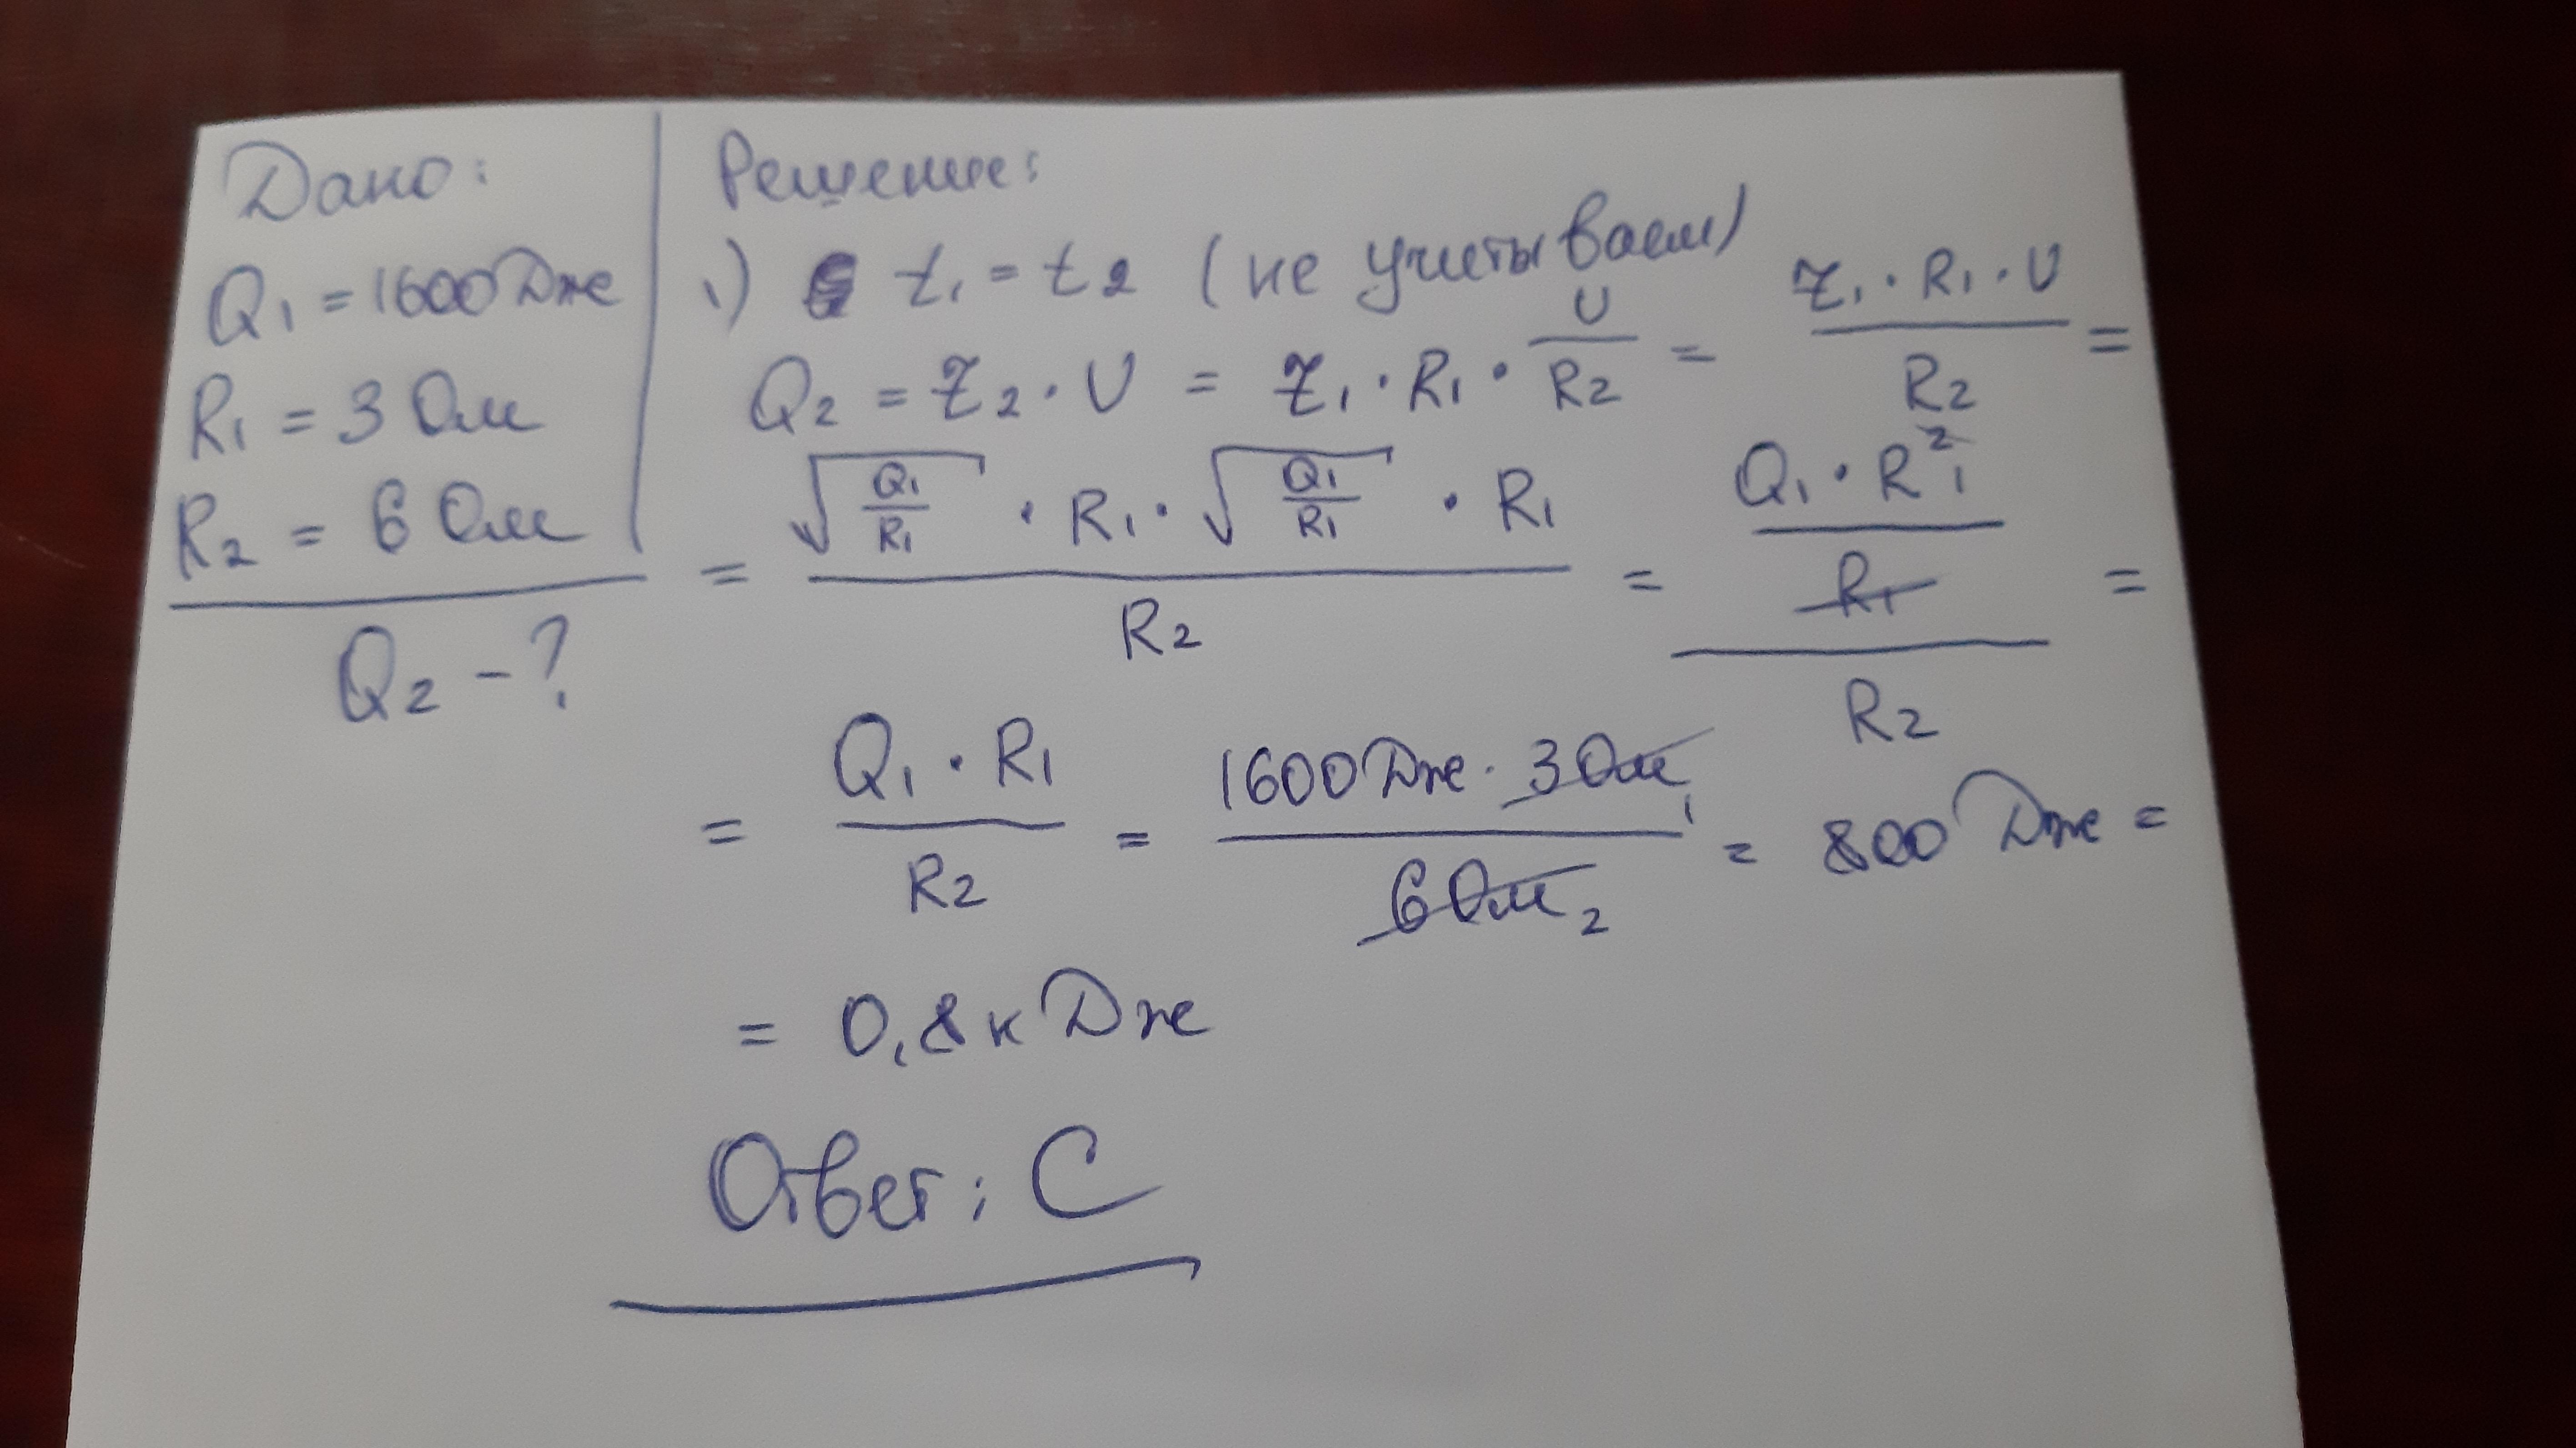 Дано:
Q₁ = 1600 Дже
R₁ = 3 Ом
R₂ = 6 Ом
Q₂ - ?
Решение:
1) t₁ = t₂ (не учитываем)
Q₂ = I₂ · U = I₁ · R₁ · U/R₂ = I₁ · R₁ · U / R₂ =
= √(Q₁/R₁) · R₁ · √(Q₁/R₁) · R₁ / R₂ = Q₁ · R₁² / R₁ / R₂ =
= Q₁ · R₁ / R₂ = 1600 Дже · 3 Ом 1 / 6 Ом 2 = 800 Дже =
= 0,8 к Дже
Ответ: С